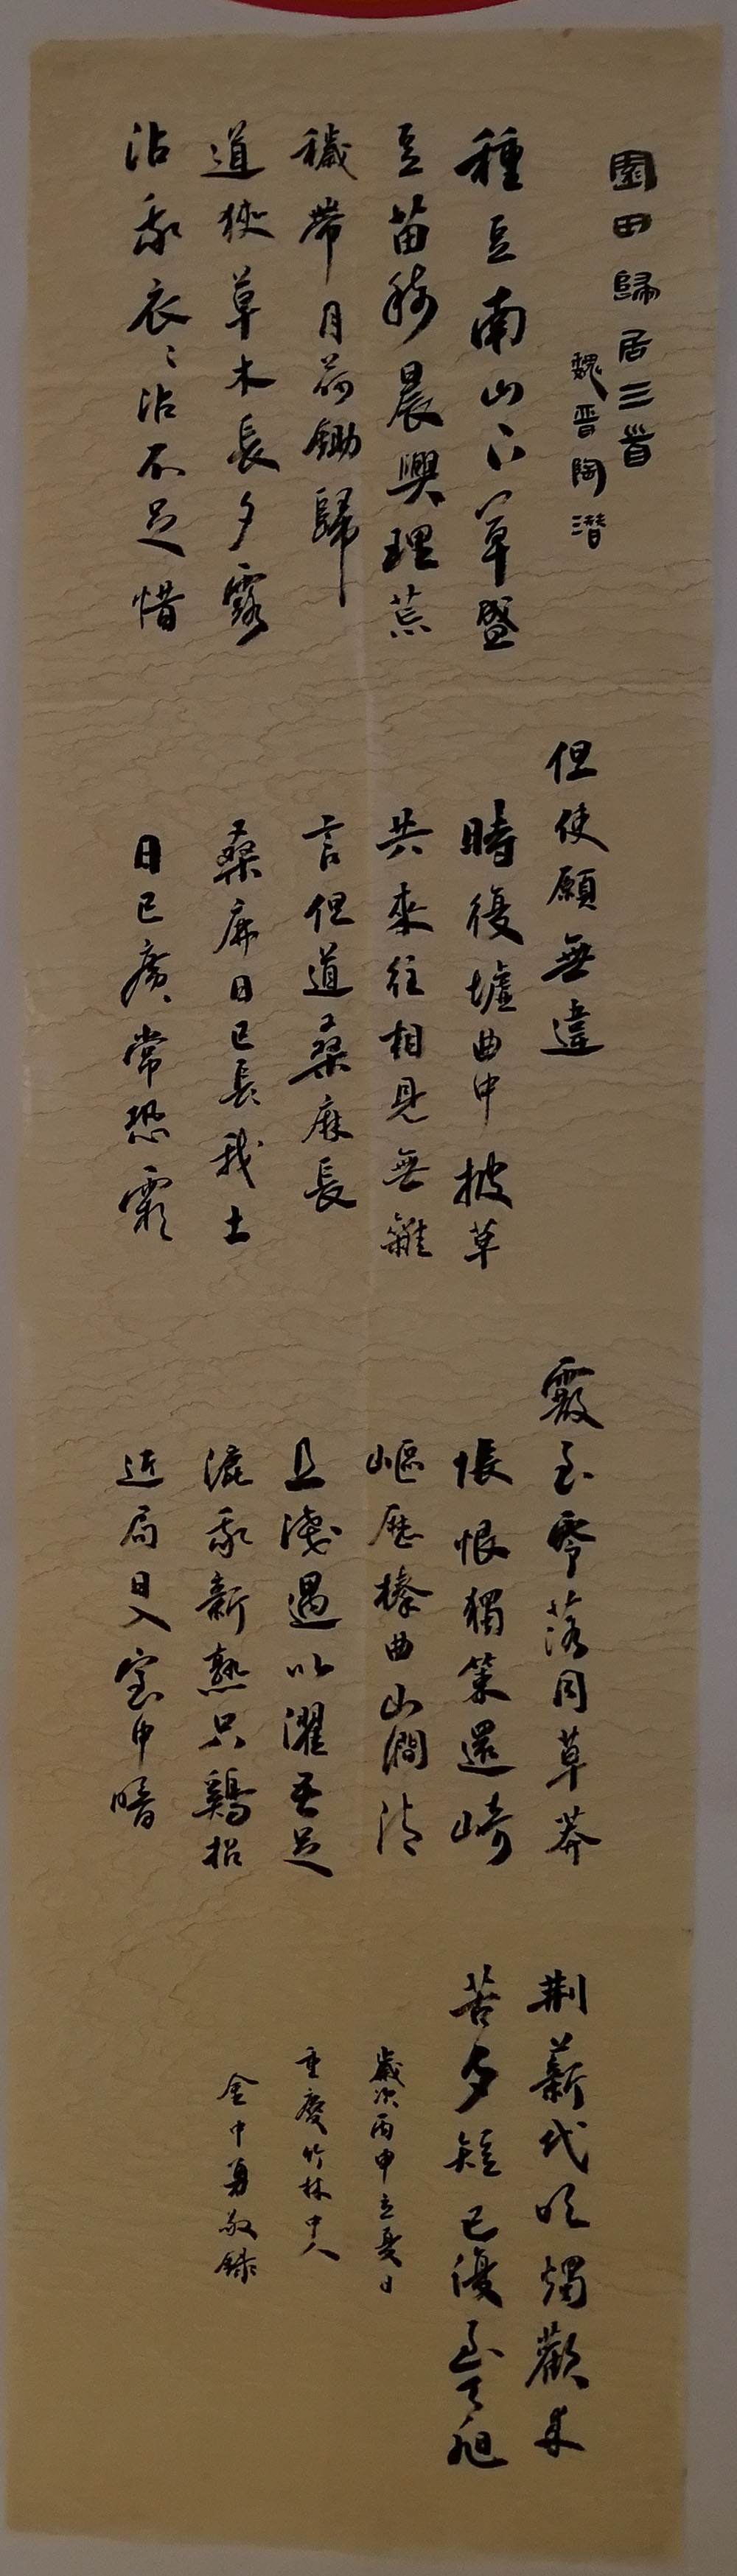 園田歸居三首
魏晉陶潛
種豆南山下草盛
豆苗稀晨興理荒
穢帶月荷鋤歸
道狹草木長夕露
沾我衣〻沾不足惜
但使願無違
時復墟曲中披草
共來往相見無雜
言但道桑麻長
桑麻日已長我土
日已廣常恐霜
霰至零落同草莽
悵恨獨策還崎
嶇歷榛曲山澗清
且淺遇以濯吾足
漉我新熟只鷄招
近局日入室中暗
荆薪代明燭歡來
苦夕短已復至天旭
歲次丙申立夏日
重慶竹林中人
金中勇敬錄